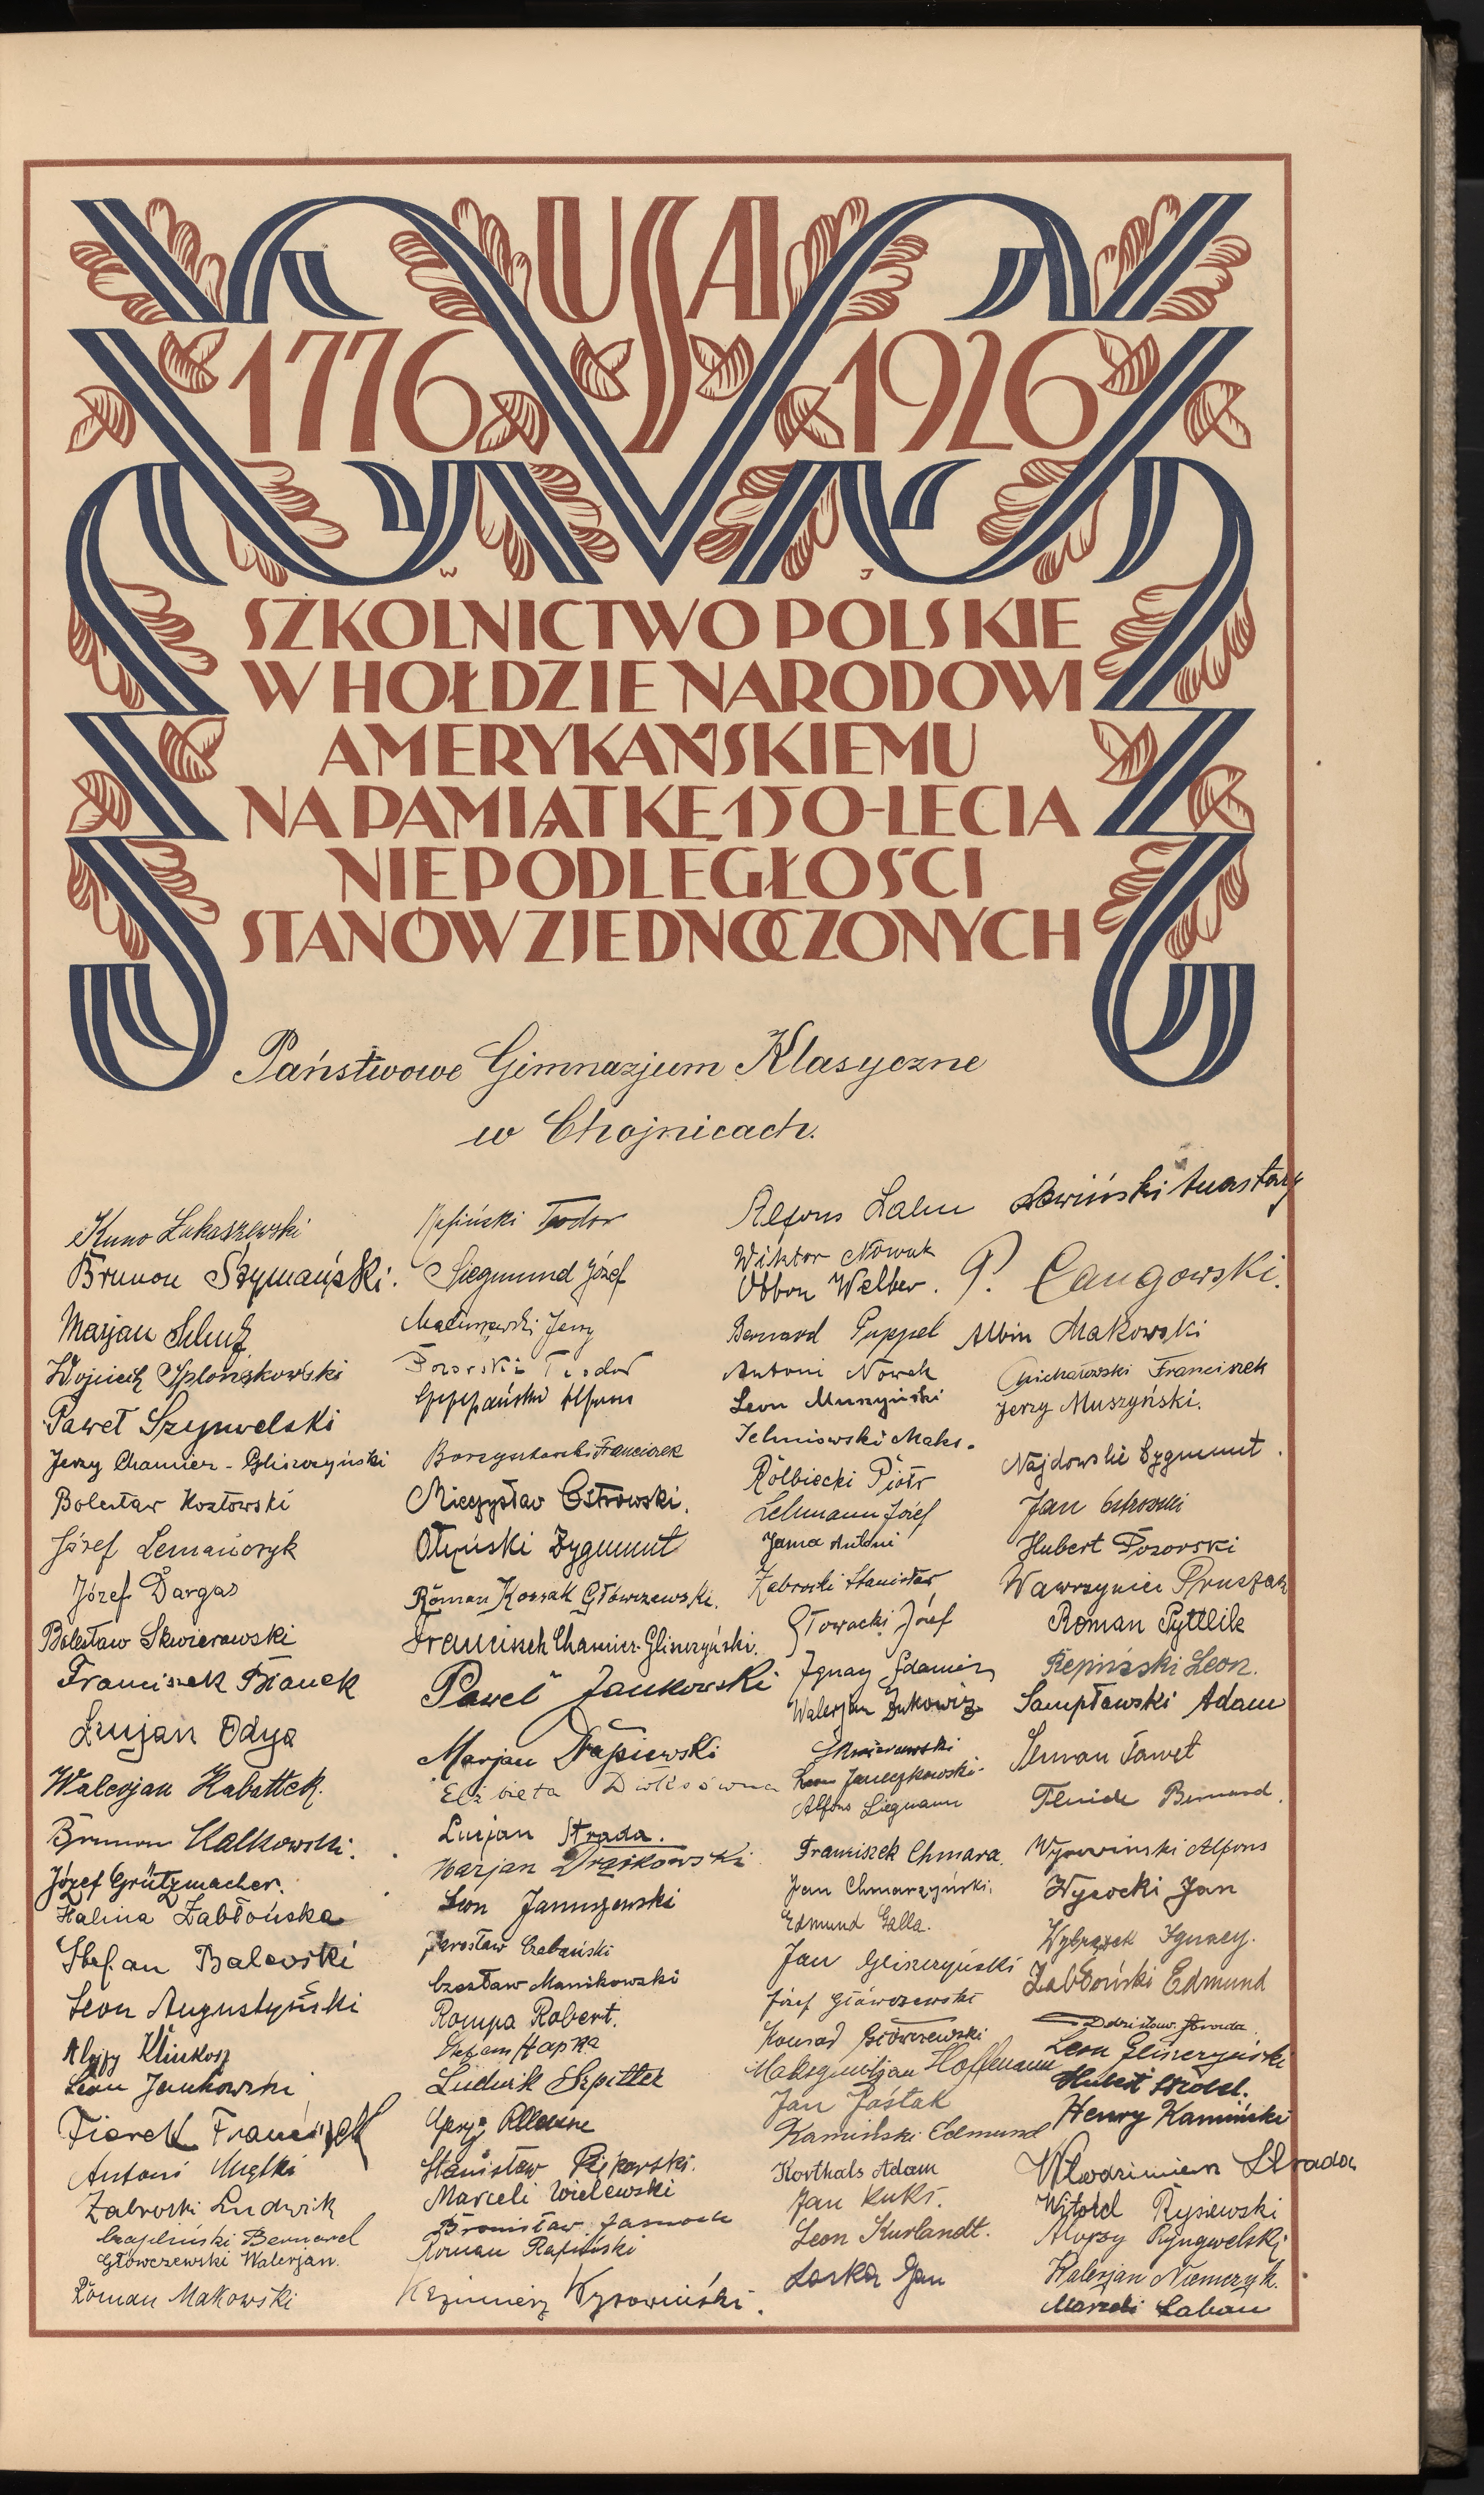 USA
1776 1926
W J
SZKOLNICTWO POLSKIE
W HOŁDZIE NARODOWI
AMERYKAŃSKIEMU
NA PAMIĄTKĘ 150-LECIA
NIEPODLEGŁOŚCI
STANÓW ZJEDNOCZONYCH
Państwowe Gimnazjum Klasyczne
w Chojnicach.
Kuno Łukaszewski
Brunon Szymański.
Marjan
Wojciech
Paweł Szynwelski
Jerzy Chamier-Gliszczyński
Bolesław Kozłowski
Józef Lemańczyk
Józef Dargas
Bolesław Skwierawski
Franciszek Bianek
Lucjan Odya
Walerjan Kabattek.
Brunon Kalkowski.
Józef Grützmacher.
Halina Zabłońska
Stefan Balewski
Leon Augustyński
Alojzy Klinkosz
Leon Jankowski
Fiorek Franciszek
Antoni Miętki
Zabroski Ludwik
Czapliński Bernard
Główczewski Walerjan.
Roman Makowski
Teodor
Siegmund Józef
Maliszewski Jerzy
Pozorski Teodor
Alfons
Franciszek
Mieczysław Ostrowski.
Zygmunt
Roman Kossak Główczewski.
Franciszek Chamier-Gliszczyński.
Paweł Jankowski
Marjan Drapiewski
Elżbieta
Lucjan Strada.
Marjan Drążkowski
Leon Januszewski
Jarosław
Czesław Manikowski
Rompa Robert.
Stefan Hapka
Ludwik Szpitter
Stanisław Piękarski.
Marceli Wielewski
Bronisław
Roman Rapiński
Kazimierz Wyrowiński.
Alfons
Wiktor Nowak
Obbon Welber.
Bernard Puppel
Antoni Nowak
Leon Muszyński
Maks.
Rolbiecki Piotr
Lehmann Józef
Jama Antoni
Zabroski Stanisław
Głowacki Józef
Ignacy
Walerjan Żukowicz
Skwierawski
Leon Janczkowski
Alfons Siegmann
Franciszek Chmara.
Jan Chmarzyński.
Edmund Galla.
Jan Gliszczyński
Józef Główczewski
Konrad Główczewski
Maksymiljan Hoffmann
Jan Jaśtak
Kamiński Edmund
Korthals Adam
Jan Kuks.
Leon Kurlandt.
Loska Jan
Lewiński
P. Cangowski.
Albin Makowski
Michałowski Franciszek
Jerzy Muszyński.
Najdowski Zygmunt.
Jan Ostrowski
Hubert Pozorski
Wawrzyniec Pruszak
Roman Pyttlik
Repiński Leon.
Sampławski Adam
Paweł
Bernard.
Wyrowiński Alfons
Wysocki Jan
Wybrązek Ignacy.
Zabłoński Edmund
Zdzisław Strada
Leon Gliszczyński
Hubert
Henry Kamiński
Włodzimierz Strada
Witold Rysiewski
Alojzy Ryngwelski
Walerjan Niemczyk.
Marceli Laban